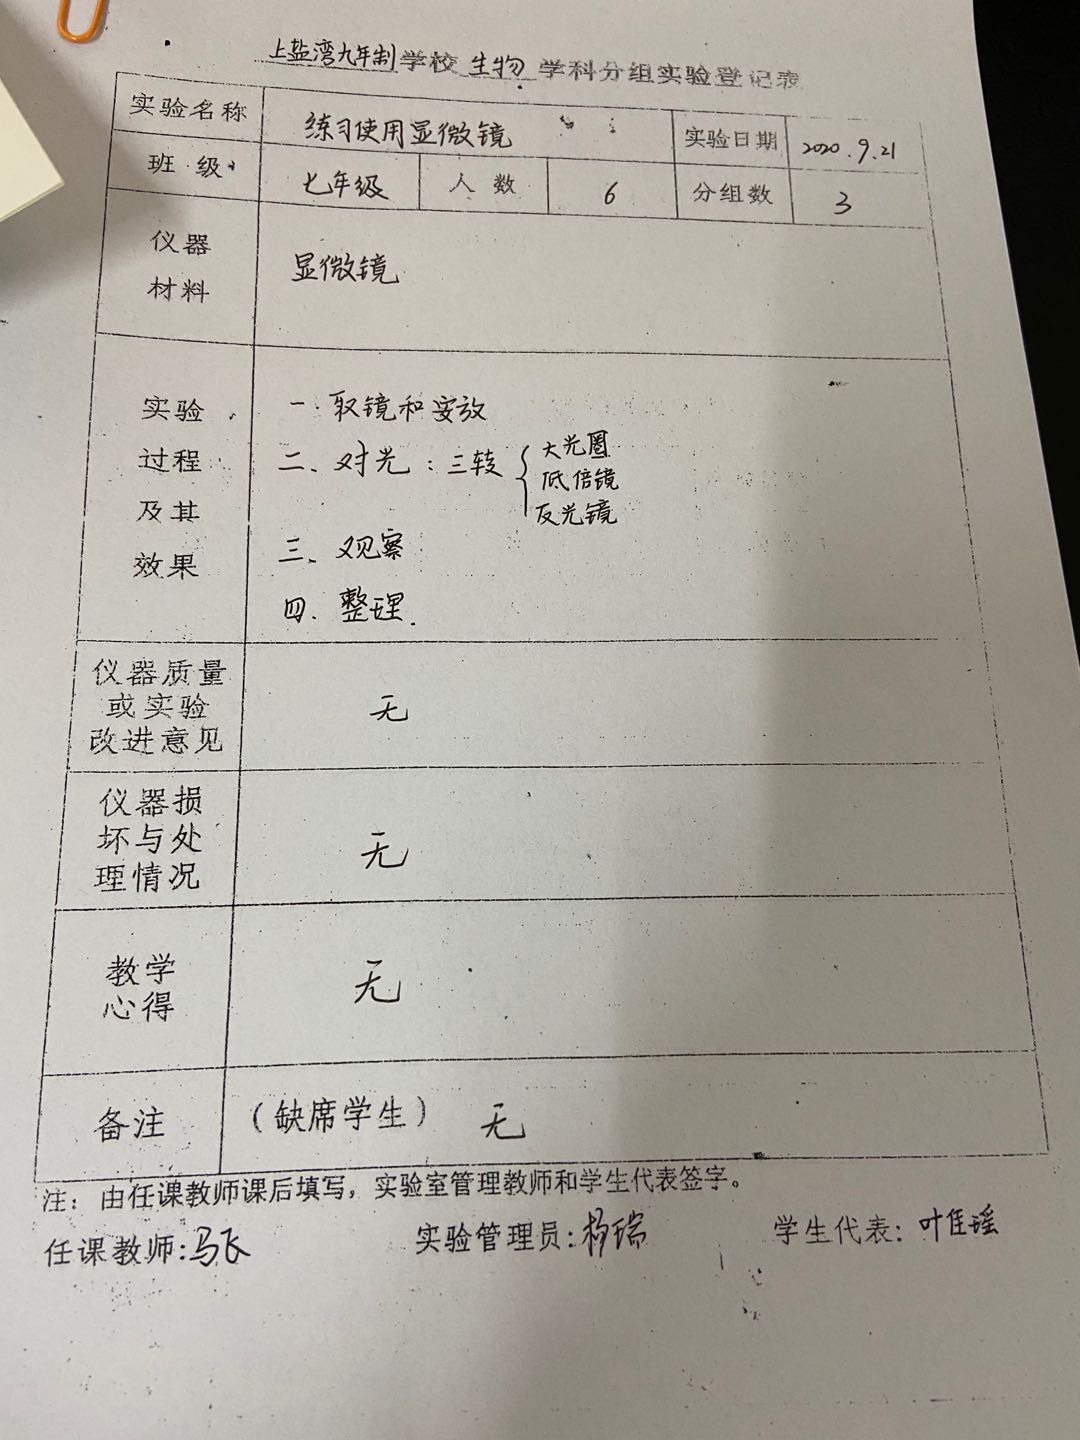 上盐湾九年制学校 生物 学科分组实验登记表
实验名称 练习使用显微镜 实验日期 2020.9.21
班级 七年级 人数 6 分组数 3
仪器
材料
显微镜
实验
过程
及其
效果
一.取镜和安放
二、对光:三转{大光圈
低倍镜
反光镜
三、观察
四.整理.
仪器质量
或实验
改进意见
无
仪器损
坏与处
理情况
无
教学
心得
无
备注 (缺席学生) 无
注:由任课教师课后填写,实验室管理教师和学生代表签字。
任课教师:马飞 实验管理员:杨瑞 学生代表:叶佳瑶